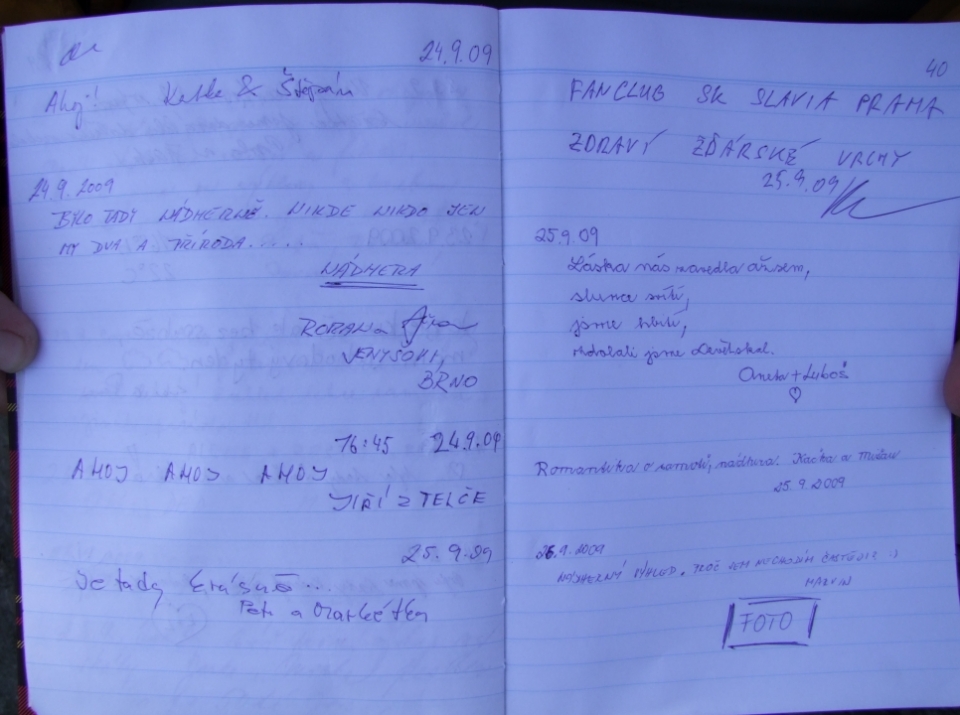 24.9.09
Ahoj! Katka & Štěpán
24.9.2009
BYLO TADY NÁDHERNĚ. NIKDE NIKDO JEN
MY DVA A PŘÍRODA.....
NÁDHERA
ROMANA
BRNO
16:45 24.9.09
AHOJ AHOJ AHOJ
JIŘÍ Z TELČE
25.9.09
Je tady krásně...
Petr a Markétka
40
FANCLUB SK SLAVIA PRAHA
ZDRAVÍ ŽĎÁRSKÉ VRCHY
25.9.09
25.9.09
Láska nás zavedla až sem,
slunce svítí,
jsme sbití,
zdolali jsme Devět skal.
Aneta + Luboš
Romantika o samotě, nádhera. Kačka a
25.9.2009
26.9.2009
NÁDHERNÝ VÝHLED. PROČ SEM NECHODÍM ČASTĚJI? :)
MARTIN
FOTO